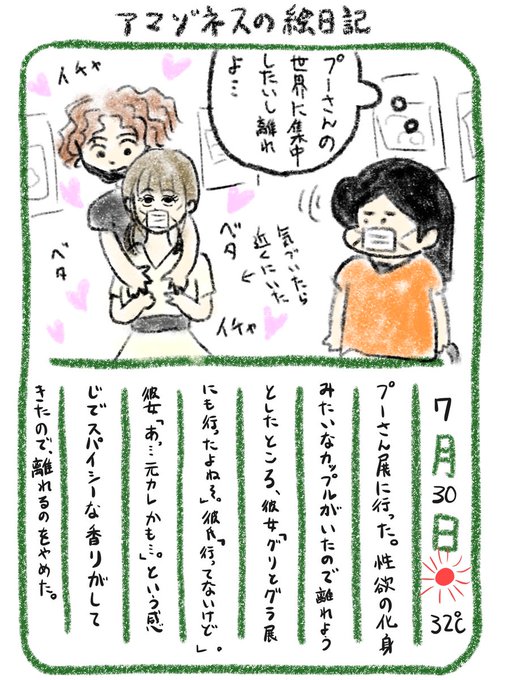 アマゾネスの絵日記
プーさんの
世界に集中
したいし離れ
よ…
イチャ
ベタ
ベタ
イチャ
気づいたら
近くにいた
7月30日
32℃
プーさん展に行った。性欲の化身
みたいなカップルがいたので離れよう
としたところ、彼女「グリとグラ展
にも行ったよねぇ」。彼氏「行ってないけど」。
彼女「あっ…元カレかも…。」という感
じでスパイシーな香りがして
きたので、離れるのをやめた。